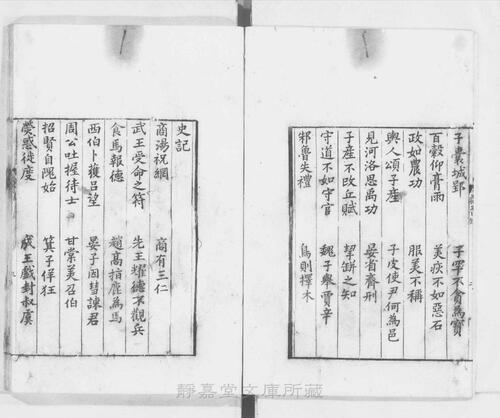 子囊城郢　子罕不貪為寶
百穀仰膏雨　美疢不如惡石
政如農功　服美不稱
輿人頌子產　子皮使尹何為邑
見河洛思禹功　晏省齊刑
子產不改丘賦　挈缾之知
守道不如守官　魏子舉賈辛
邾魯失禮　鳥則擇木
史記
商湯祝網　商有三仁
武王受命之符　先王耀德不觀兵
食馬報德　趙高指鹿為馬
西伯卜獲呂望　晏子因彗諫君
周公吐握待士　甘棠美召伯
招賢自隗始　箕子佯狂
熒惑徙度　成王戲封叔虞
靜嘉堂文庫所藏